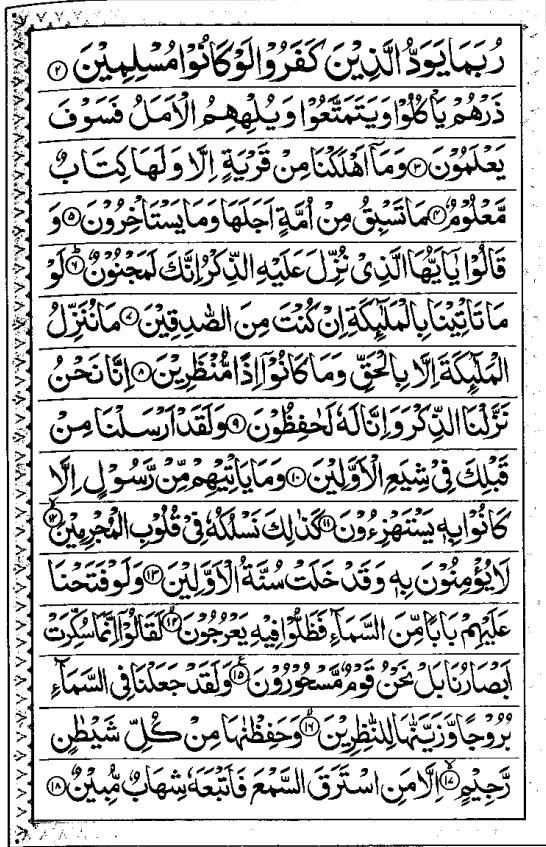 رُبَمَا يَوَدُّ الَّذِيْنَ كَفَرُوْا لَوْ كَانُوْا مُسْلِمِيْنَ ۝۲
ذَرْهُمْ يَاْكُلُوْا وَيَتَمَتَّعُوْا وَيُلْهِهِمُ الْاَمَلُ فَسَوْفَ
يَعْلَمُوْنَ ۝۳ وَمَاۤ اَهْلَكْنَا مِنْ قَرْيَةٍ اِلَّا وَلَهَا كِتَابٌ
مَّعْلُوْمٌ ۝۴ مَا تَسْبِقُ مِنْ اُمَّةٍ اَجَلَهَا وَمَا يَسْتَاْخِرُوْنَ ۝۵ وَ
قَالُوْا يٰۤاَيُّهَا الَّذِيْ نُزِّلَ عَلَيْهِ الذِّكْرُ اِنَّكَ لَمَجْنُوْنٌ ۝۶ لَوْ
مَا تَاْتِيْنَا بِالْمَلٰٓئِكَةِ اِنْ كُنْتَ مِنَ الصّٰدِقِيْنَ ۝۷ مَا نُنَزِّلُ
الْمَلٰٓئِكَةَ اِلَّا بِالْحَقِّ وَمَا كَانُوْۤا اِذًا مُّنْظَرِيْنَ ۝۸ اِنَّا نَحْنُ
نَزَّلْنَا الذِّكْرَ وَاِنَّا لَهٗ لَحٰفِظُوْنَ ۝۹ وَلَقَدْ اَرْسَلْنَا مِنْ
قَبْلِكَ فِيْ شِيَعِ الْاَوَّلِيْنَ ۝۱۰ وَمَا يَاْتِيْهِمْ مِّنْ رَّسُوْلٍ اِلَّا
كَانُوْا بِهٖ يَسْتَهْزِءُوْنَ ۝۱۱ كَذٰلِكَ نَسْلُكُهٗ فِيْ قُلُوْبِ الْمُجْرِمِيْنَ ۝۱۲
لَا يُؤْمِنُوْنَ بِهٖ وَقَدْ خَلَتْ سُنَّةُ الْاَوَّلِيْنَ ۝۱۳ وَلَوْ فَتَحْنَا
عَلَيْهِمْ بَابًا مِّنَ السَّمَآءِ فَظَلُّوْا فِيْهِ يَعْرُجُوْنَ ۝۱۴ لَقَالُوْۤا اِنَّمَا سُكِّرَتْ
اَبْصَارُنَا بَلْ نَحْنُ قَوْمٌ مَّسْحُوْرُوْنَ ۝۱۵ وَلَقَدْ جَعَلْنَا فِى السَّمَآءِ
بُرُوْجًا وَّزَيَّنّٰهَا لِلنّٰظِرِيْنَ ۝۱۶ وَحَفِظْنٰهَا مِنْ كُلِّ شَيْطٰنٍ
رَّجِيْمٍ ۝۱۷ اِلَّا مَنِ اسْتَرَقَ السَّمْعَ فَاَتْبَعَهٗ شِهَابٌ مُّبِيْنٌ ۝۱۸